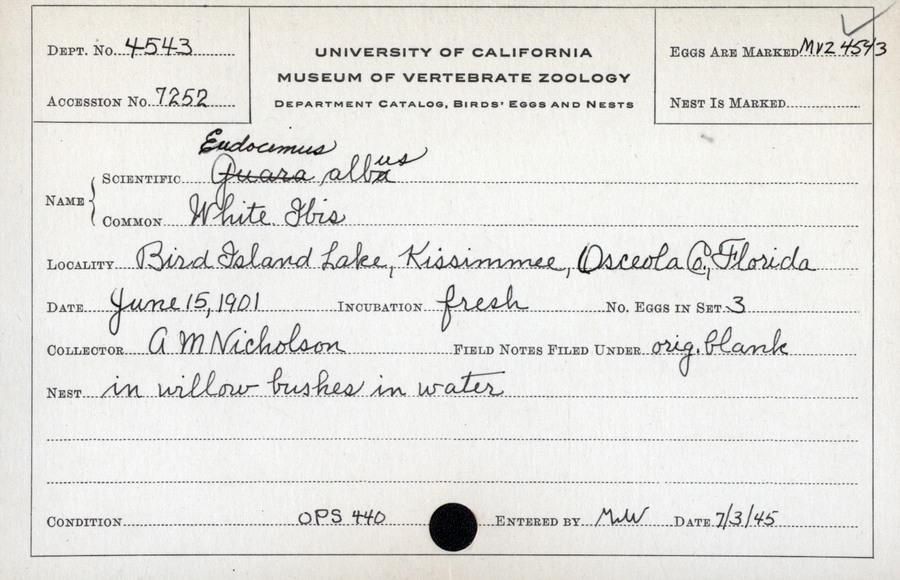 DEPT. NO. 4543
ACCESSION NO. 7252
UNIVERSITY OF CALIFORNIA
MUSEUM OF VERTEBRATE ZOOLOGY
DEPARTMENT CATALOG, BIRDS' EGGS AND NESTS
EGGS ARE MARKED MVZ 4543
NEST IS MARKED
Eudocimus
NAME SCIENTIFIC Guara albus
COMMON White Ibis
LOCALITY Bird Island Lake, Kissimmee, Osceola Co., Florida
DATE June 15, 1901 INCUBATION fresh NO. EGGS IN SET 3
COLLECTOR A M Nicholson FIELD NOTES FILED UNDER orig. blank
NEST in willow bushes in water
CONDITION OPS 440 ENTERED BY MLW DATE 7/3/45